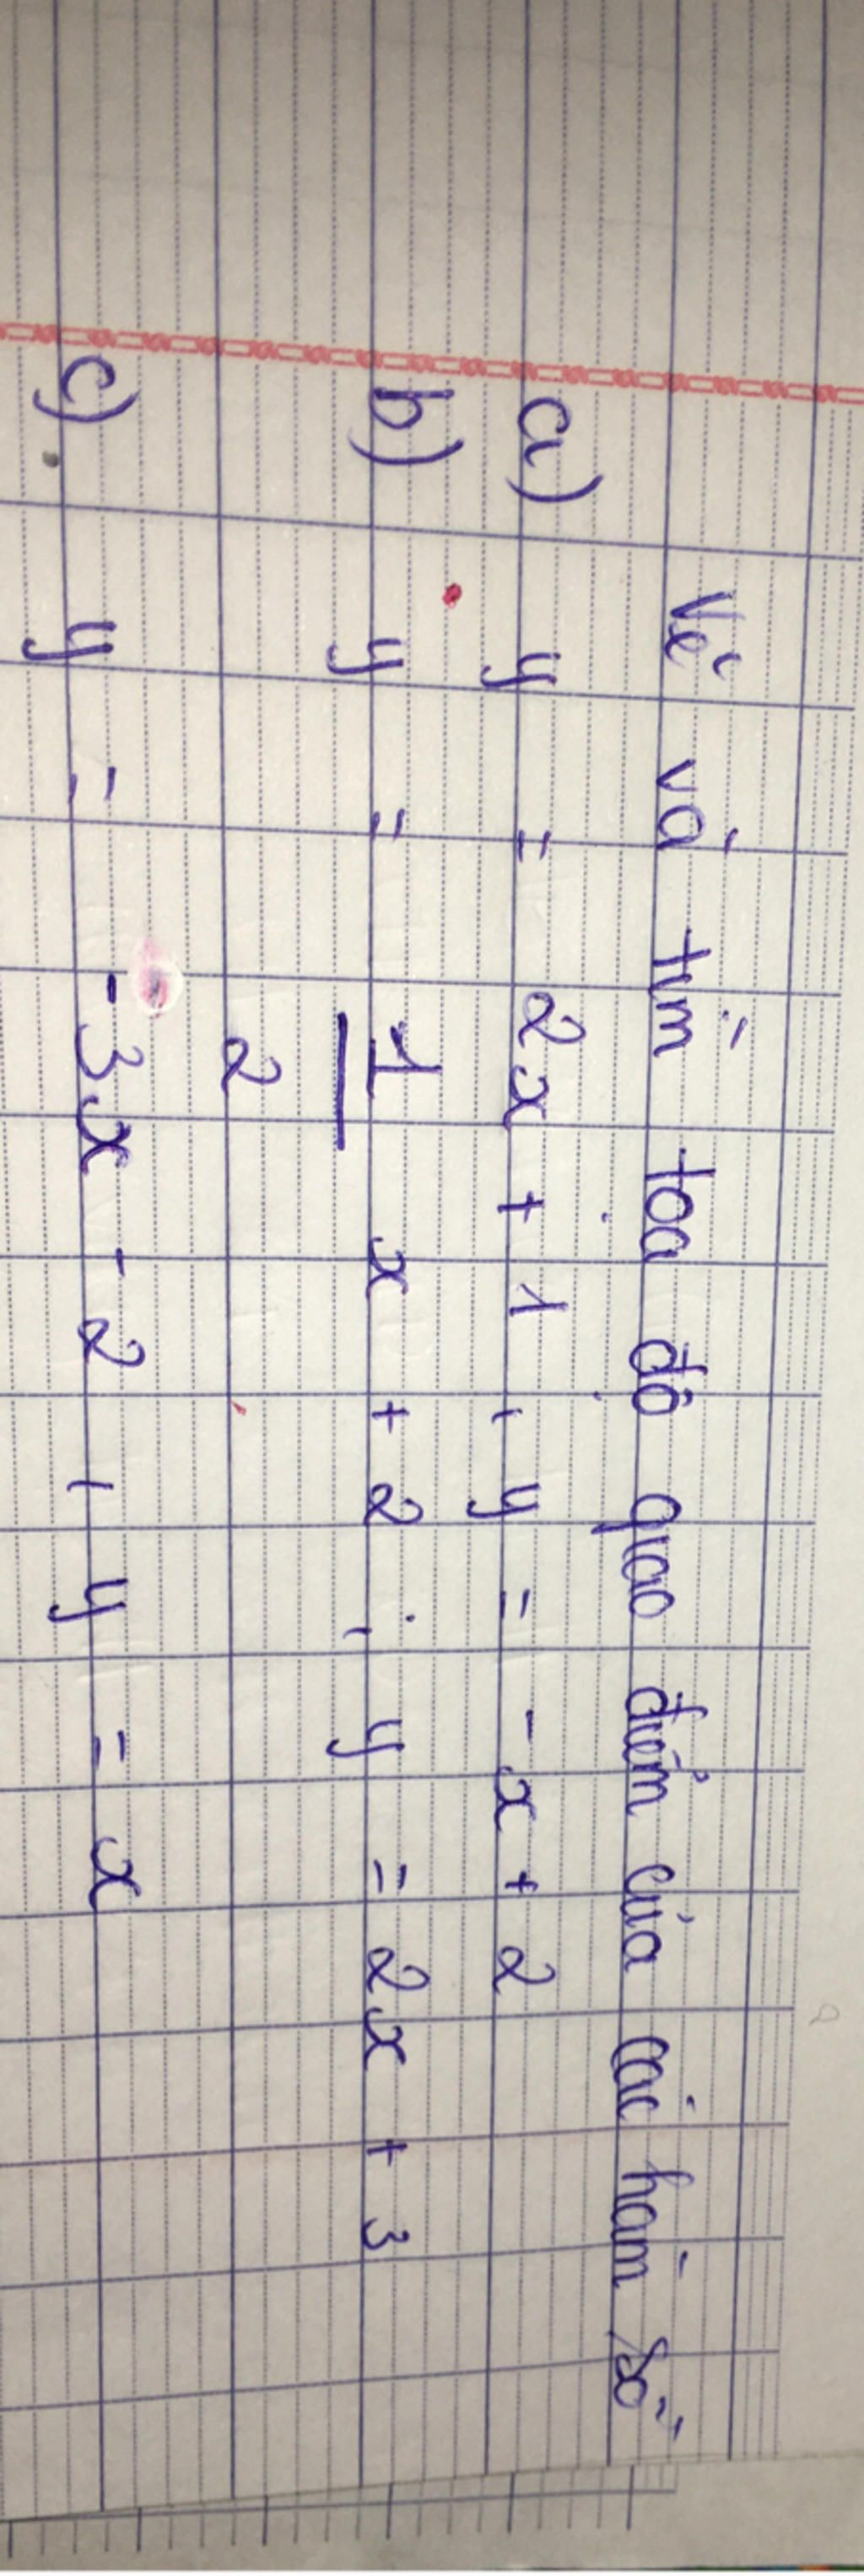 Vẽ và tìm tọa độ giao điểm của các hàm số
a) y = 2x + 1 , y = -x + 2
b) y = 1/2 x + 2 ; y = 2x + 3
c) y = -3x - 2 , y = x